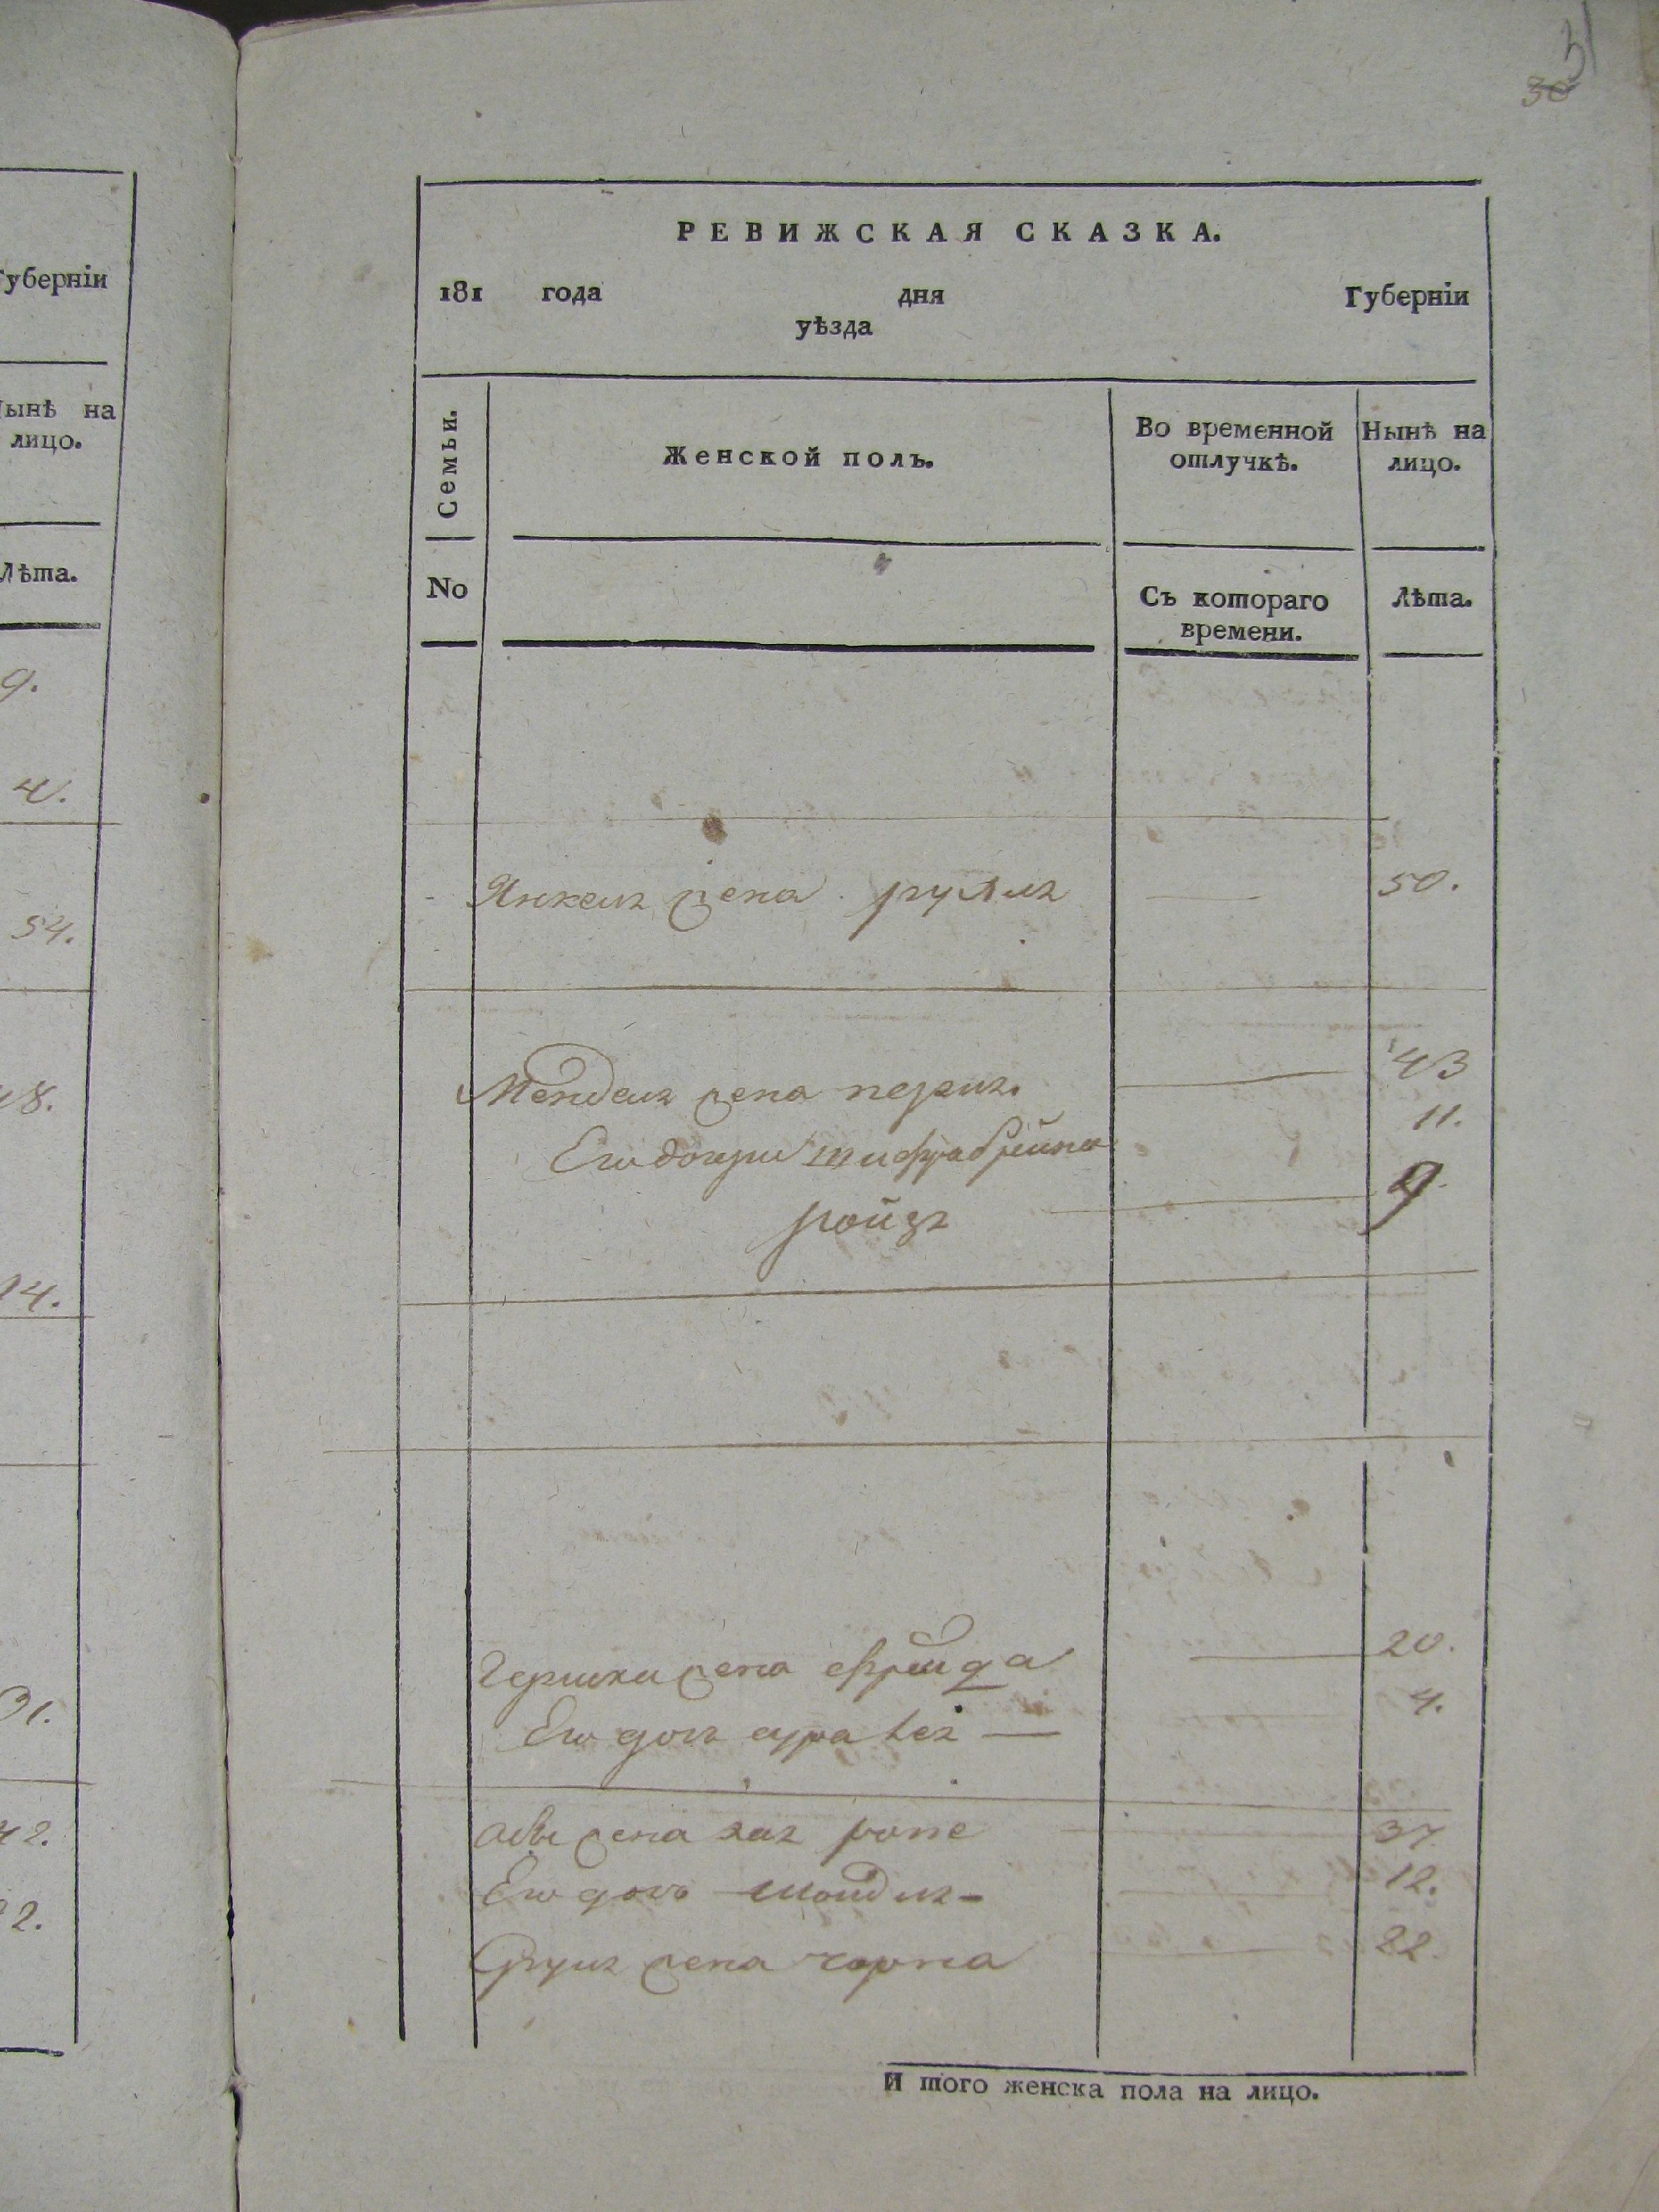 31
30
Губерніи
Нынѣ на
лицо.
Лѣта.
9.
4.
54.
31.
42.
РЕВИЖСКАЯ СКАЗКА.
181 года дня Губерніи
уѣзда
Семьи. Женской полъ. Во временной отлучкѣ. Нынѣ на лицо.
No Съ котораго времени. Лѣта.
Янкеля жена рухля 50.
Менделя жена перля. 43
Его дочери шифрабрейна 11.
ройза 9
Гершки жена фрейда 20.
Его дочь сура 4.
жена хая 37
Его дочь шейдля 12.
Сруля жена чарна 22.
И того женска пола на лицо.